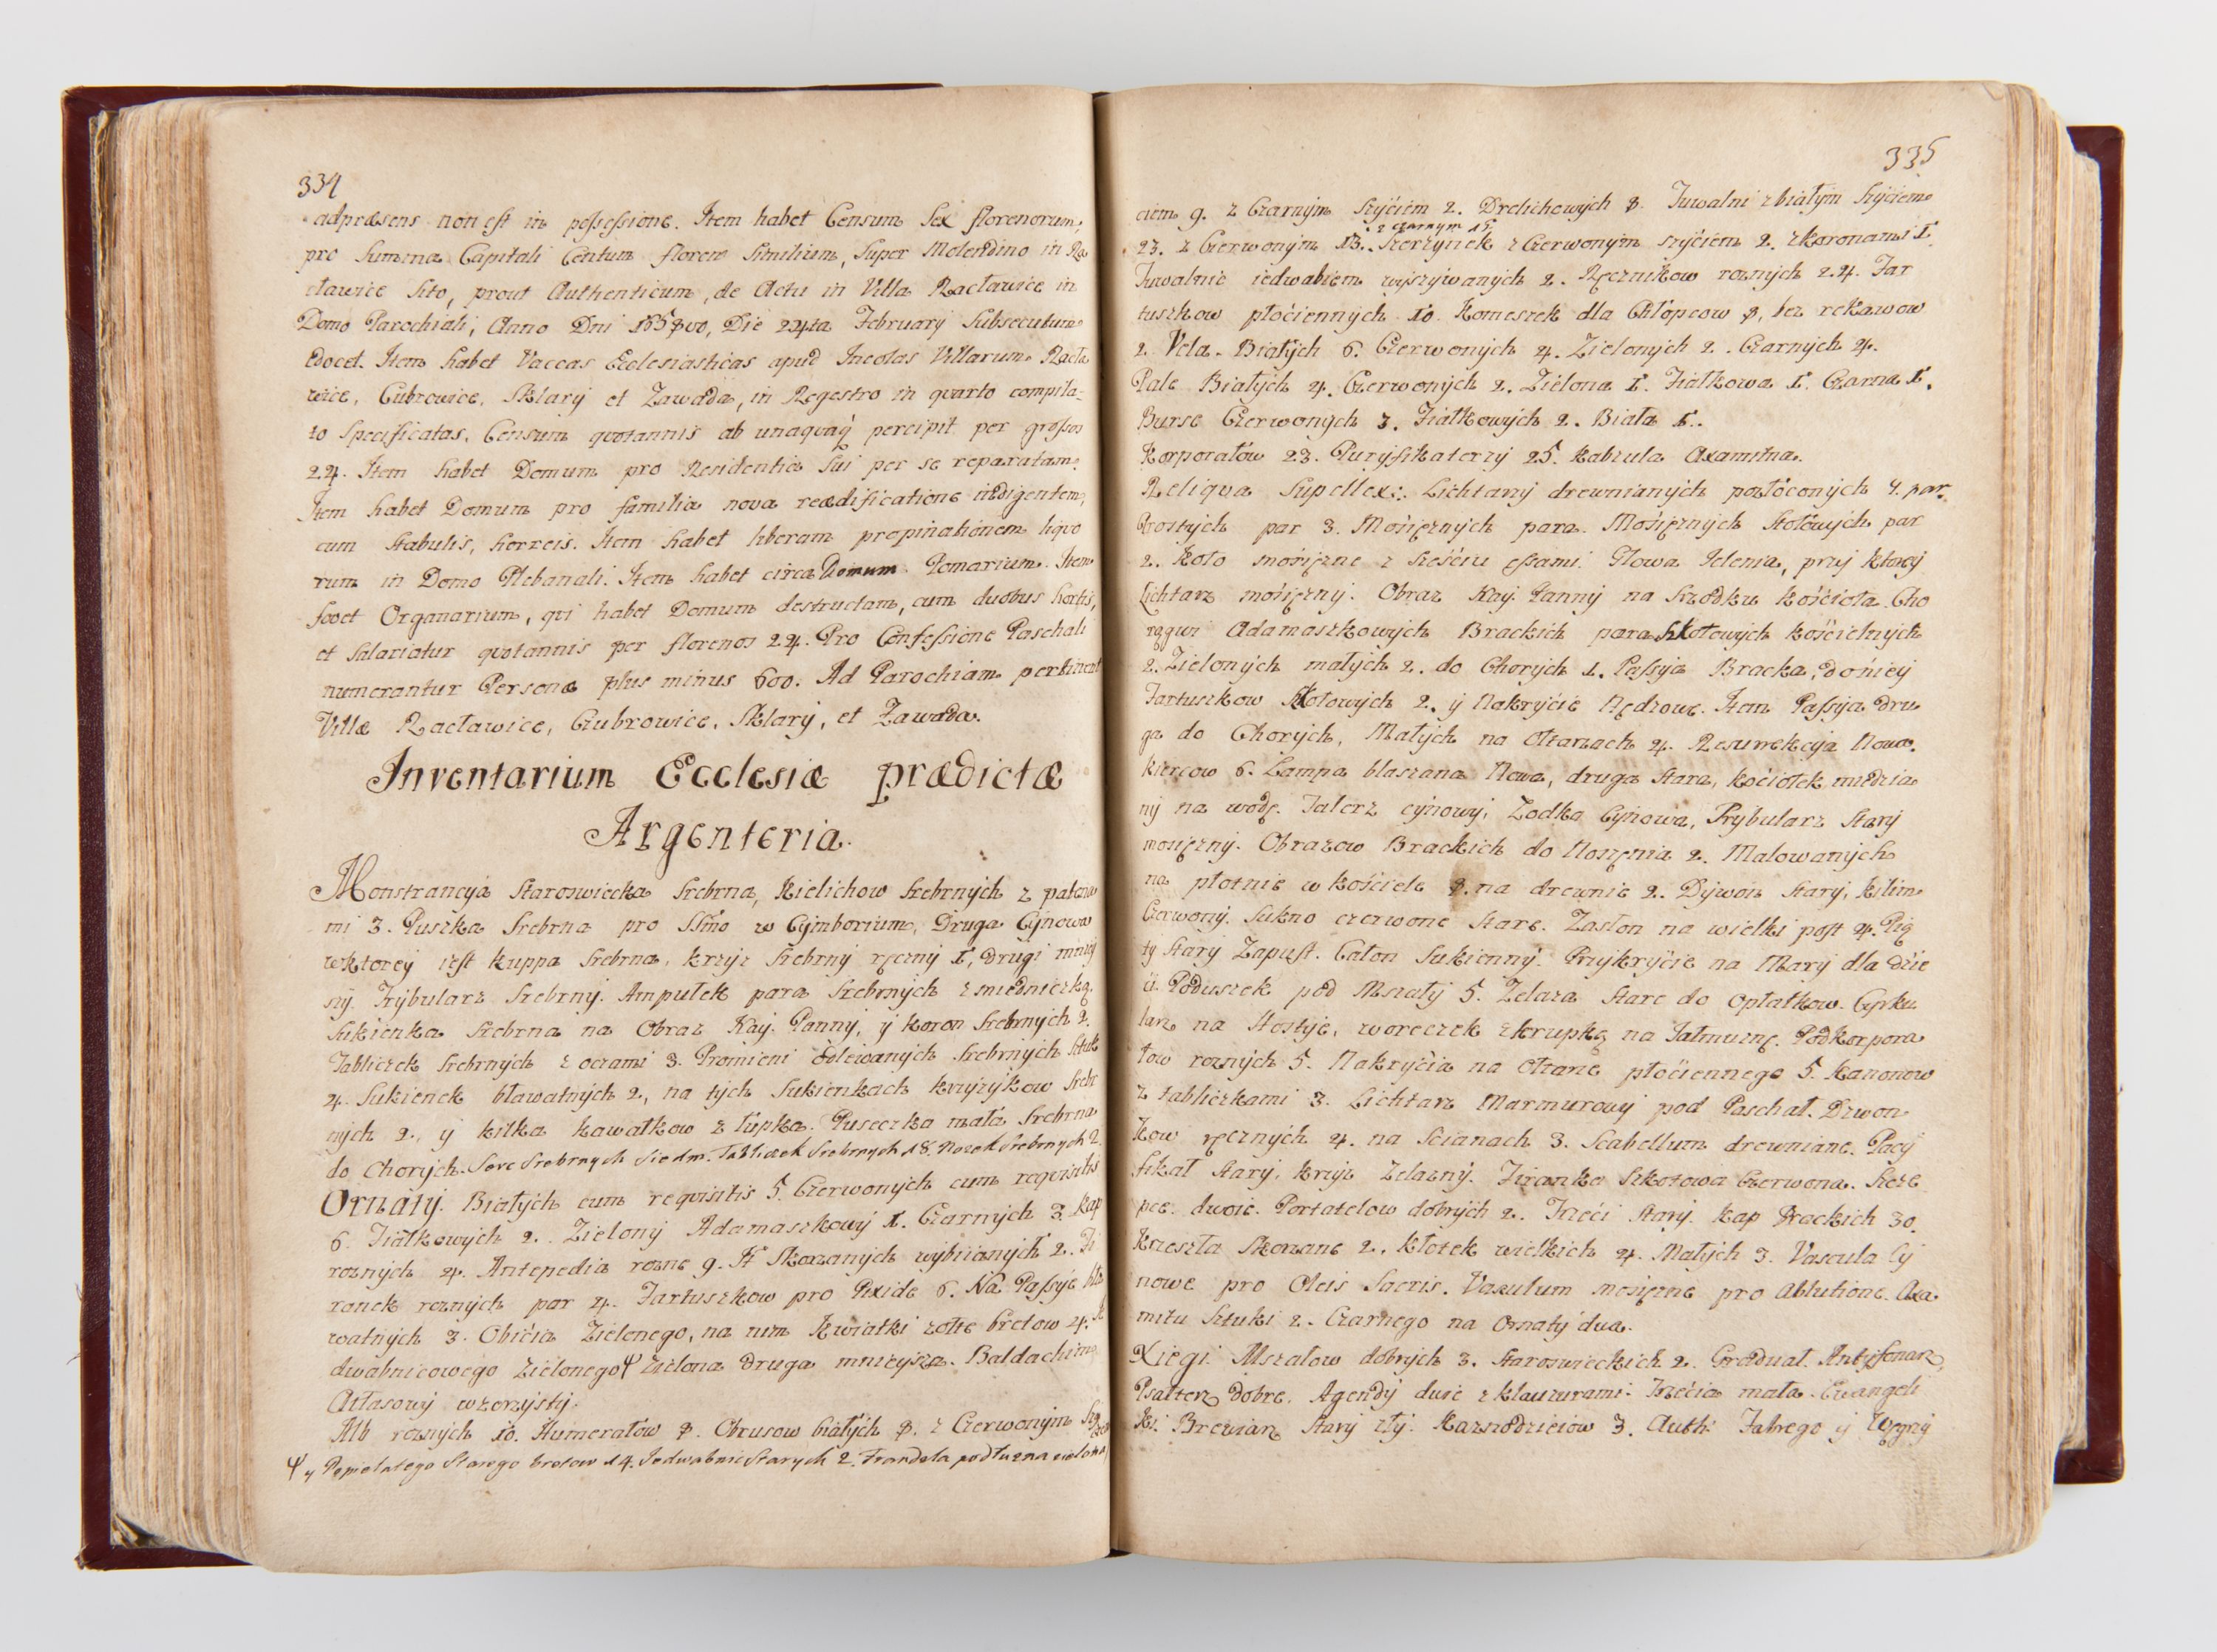 334
adpræsens non est in possessione. Item habet Censum Sex florenorum,
pro Summa Capitali Centum floren Similium, Super Molendino in Ra
cławice Sito, prout Authenticum, de Actu in Villa Racławice in
Domo Parochiali, Anno Dni 1658vo, Die 24ta February Subsecutum
edocet. Item habet Vaccas Ecclesiasticas apud Incolas Villarum Racła
wice, Cubrowice, Sklary et Zawada, in Regestro in quarto compila=
to Specificatas, Censum quotannis ab unaquaq percipit per grossos
24. Item habet Domum pro Residentia Sui per se reparatam.
Item habet Domum pro familia nova reædificatione indigentem,
cum Stabulis, horreis. Item habet liberam propinationem liquo
rum in Domo Plebanali. Item habet circa Domum Pomarium. Item
fovet Organarium, qui habet Domum destructam, cum duobus hortis,
et Salariatur quotannis per florenos 24. Pro Confessione Paschali
numerantur Persona plus minus 600. Ad Parochiam pertinent
Villæ Racławice, Czubrowice, Sklary, et Zawada.
Inventarium Ecclesiæ prædictæ
Argenteria.
Monstrancya Staroswiecka Srebrna, Kielichow Srebrnych z patena
mi 3. Puszka Srebrna pro SSmo w Cymborium, Druga Cynowa
wktorey iest kuppa Srebrna, krzyz Srebrny ręczny 1, drugi mniey
szy. Trybularz Srebrny. Ampułek para Srebrnych z miedniczką.
Sukienka Srebrna na Obraz Nay. Panny, y koron Srebrnych 2.
Tabliczek Srebrnych z oczami 3. Promieni odlewanych Srebrnych Sztuk
4. Sukienek bławatnych 2, na tych Sukienkach krzyzykow Srebr
nych 2, y kilka kawałkow z łupka. Puseczka mała Srebrna
do Chorych. Serc Srebrnych siedm. Tabliczek Srebrnych 18. Nozek Srebrnych 2.
Ornaty. Białych cum requisitis 5. Czerwonych cum requisitis
6. Fiałkowych 2. Zielony Adamaszkowy 1. Czarnych 3. Kap
roznych 4. Antepedia rozne 9. It Skorzanych wybiianych 2. Fi
ranek roznych par 4. Fartuszkow pro Pixide 6. Na Passye
watnych 3. Obicia Zielonego, na nim kwiatki zołte bretow 4.
dwabnicowego Zielonego Ψ Zielona druga mnieysza. Baldachim
Atłasowy wzorzysty.
Alb roznych 10. Humerałów 8. Obrusow białych 8. z Czerwonym Szy
Ψ y Popielatego Starego bretow 14. Jedwabnic Starych 2. podłuzna zielona
335
ciem 9. z Czarnym szyciem 2. Drelichowych 8. Tuwalni z białym Szyciem
z czarnym 15.
23. z Czerwonym 13. Szerzynek z Czerwonym szyciem 2. z koronami 1.
Tuwalnie iedwabiem wyszywanych 2. Ręcznikow roznych 24. Far
tuszkow płóciennych 10. Komeszek dla Chłopcow 8, bez rekawow
2. Vela. Białych 6. Czerwonych 4. Zielonych 2. Czarnych 4.
Pale Białych 4. Czerwonych 2. Zielona 1. Fiałkowa 1. Czarna 1.
Burse Czerwonych 3. Fiałkowych 2. Biała 1.
Korporałów 23. Puryfikaterzy 25. Kabzula Axamitna.
Reliqva Supellex: Lichtarzy drewnianych pozłóconych 4. par
Prostych par 3. Mosięznych para. Mosięznych Stołowych par
2. Koło mosięzne z Sześciu essami. Głowa Jelenia, przy ktorey
Lichtarz mosięzny. Obraz Nay. Panny na Srzodku Kościoła. Cho
rągwi Adamaszkowych Brackich para Szkotowych kościelnych
2. Zielonych małych 2. do Chorych 1. Passya Bracka, do niey
Fartuszkow Szkotowych 2. y Nakrycie Nędzowe. Item Passya dru
ga do Chorych, Małych na Ołtarzach 4. Resurrekcya Nowa.
kiercow 6. Lampa blaszana Nowa, druga Stara, kociołek miedzia
ny na wodę. Talerz cynowy, Zodka Cynowa, Trybularz Stary
mosięzny. Obrazow Brackich do Noszenia 2. Malowanych
na płotnie w kościele 8. na drewnie 2. Dywon Stary, kilim
Czerwony. Sukno czerwone Stare. Zasłon na wielki post 4. Pią
ty Stary Zapust. Całon Sukienny. Przykrycie na Mary dla dzie
ci. Poduszek pod Mszały 5. Zelaza Stare do Opłatkow. Cyrku
larz na Hostye, woreczek z krupką na Jałmuznę. Podkorpora
łow roznych 5. Nakrycia na Ołtarze płóciennego 5. Kanonow
z tabliczkami 3. Lichtarz Marmurowy pod Paschał. Dzwon
kow ręcznych 4. na Scianach 3. Scabellum drewniane. Pacy
fikał Stary, krzyz Zelazny. Firanka Szkotowa Czerwona.
dwoie. Portatelow dobrych 2. Trzeci Stary. Kap Brackich 30.
Krzesła Skorzane 2. Kłotek wielkich 4. Małych 3. Vascula Cy
nowe pro Oleis Sacris. Vasculum mosięzne pro Ablutione. Axa
mitu Sztuki 2. Czarnego na Ornaty dwa.
Xiegi. Mszałow dobrych 3. Staroswieckich 2. Graduał. Antyfonarz,
Psałterz Dobre. Agendy dwie z klauzurami. Trzecia mała. Ewangeli
ki. Brewiarz Stary zły. Kaznodzieiow 3. Auth: